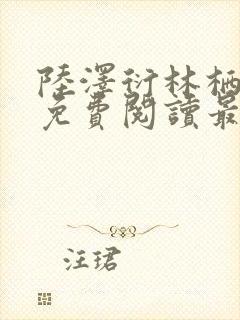 陸澤衍林栖
免費閱讀最
汪珺